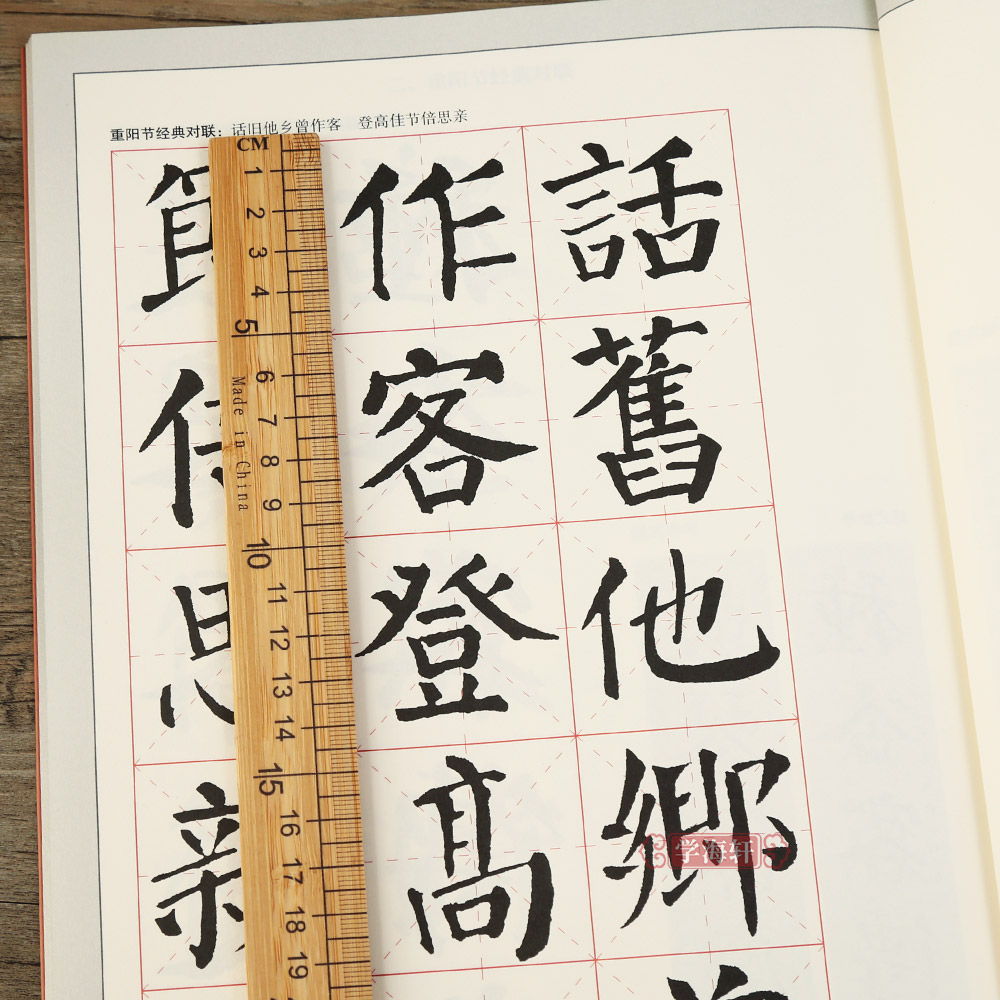 重阳节经典对联：话旧他乡曾作客　登高佳节倍思亲
話舊他鄉
作客登高
CM
1
2
3
4
5
6
7
8
9
10
11
12
13
14
15
16
17
18
19
Made in China
学海轩